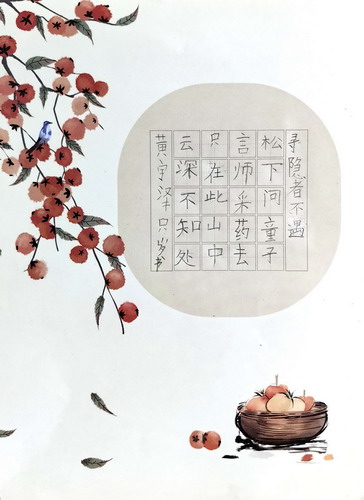 寻隐者不遇
松下问童子
言师采药去
只在此山中
云深不知处
黄宇泽 只岁书